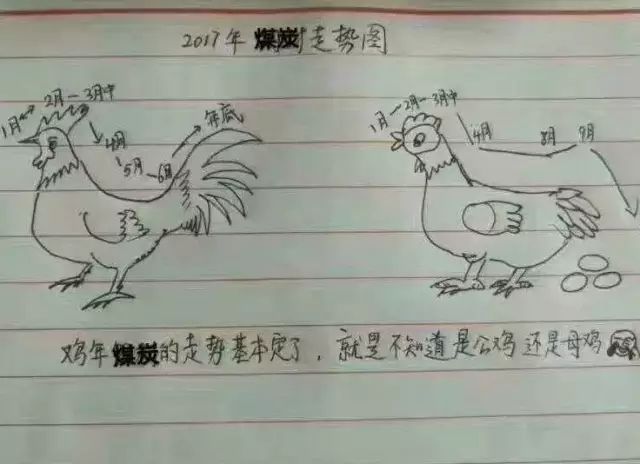 2017年煤炭走势图
1月 2月 3月中
4月
5月 6月
年底
1月 2月 3月中
4月
8月 9月
鸡年煤炭的走势基本定了，就是不知道是公鸡还是母鸡